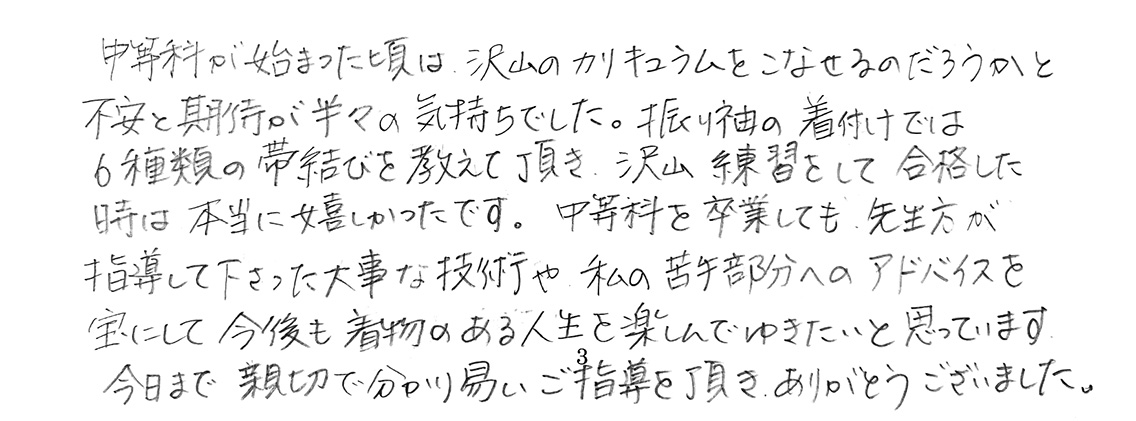 中等科が始まった頃は、沢山のカリキュラムをこなせるのだろうかと
不安と期待が半々の気持ちでした。振り袖の着付けでは
6種類の帯結びを教えて頂き、沢山練習をして合格した
時は本当に嬉しかったです。中等科を卒業しても、先生方が
指導して下さった大事な技術や、私の苦手部分へのアドバイスを
宝にして今後も着物のある人生を楽しんでゆきたいと思っています。
3
今日まで親切で分かり易いご指導を頂き、ありがとうございました。